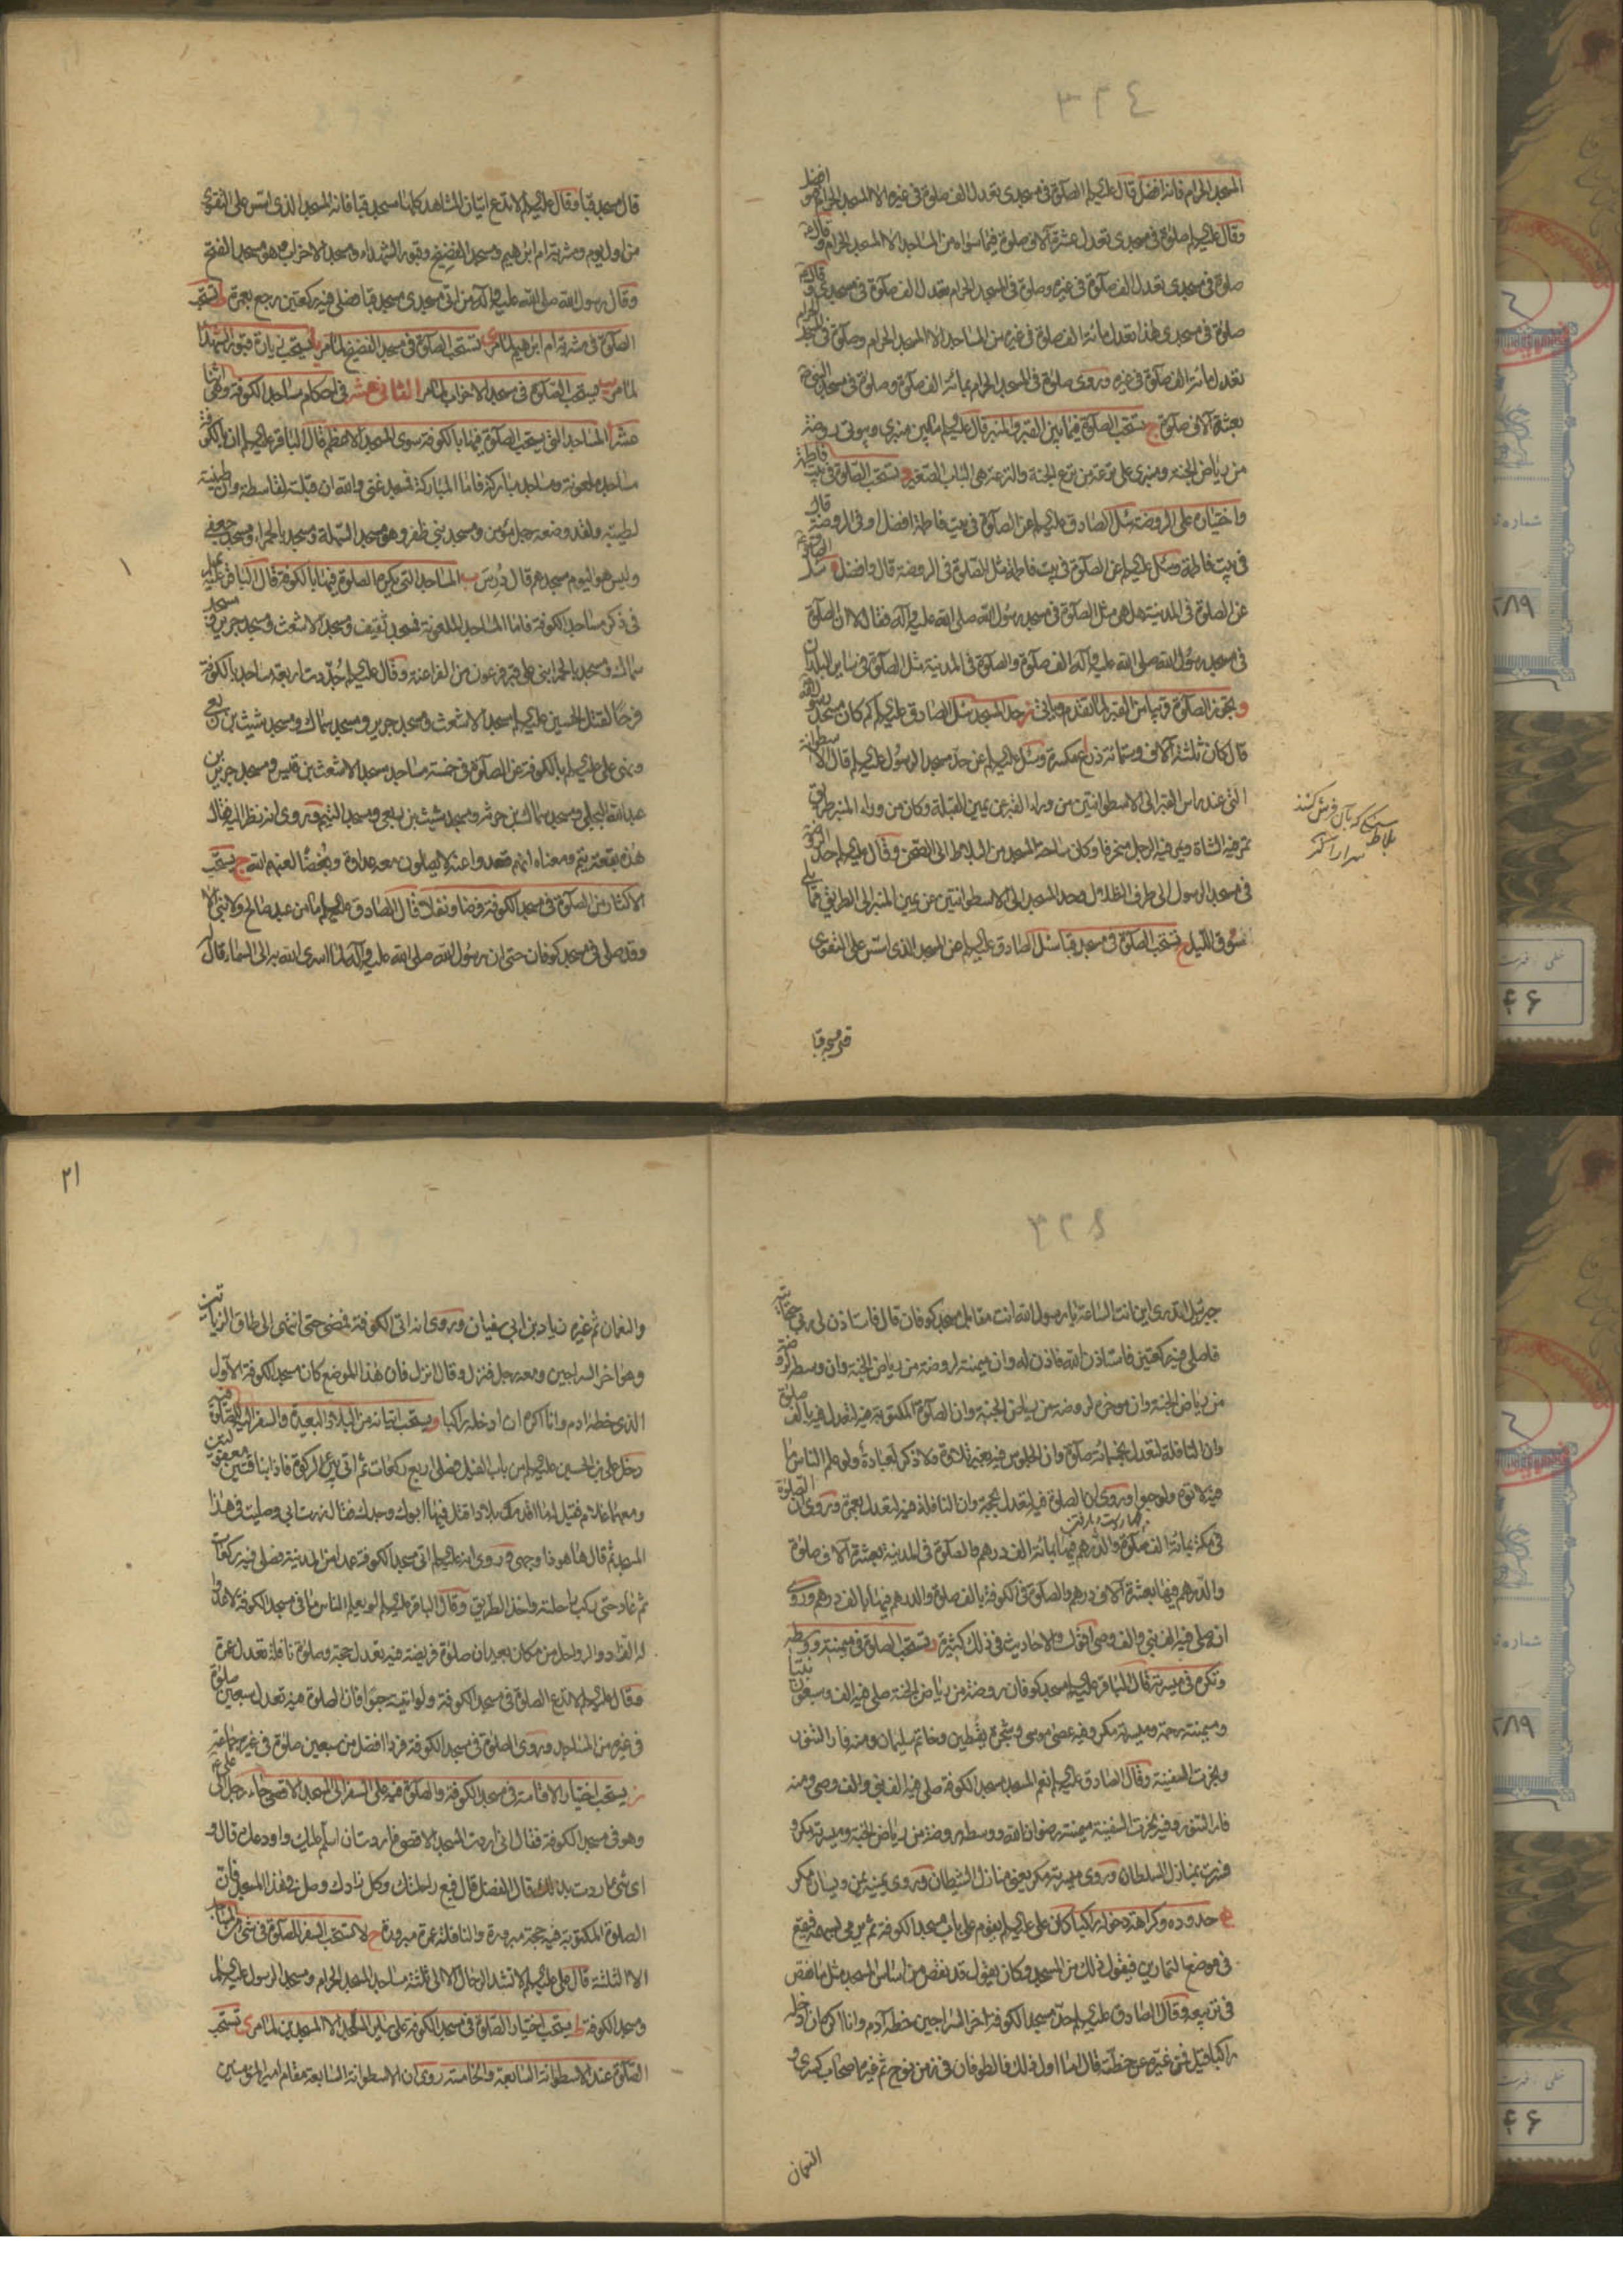 المسجد الحرام فانه افضل قال عليه السلم الصلوة فى مسجدى تعدل الف صلوة فى غيره الا المسجد الحرام فهو افضل
وقال عليه السلم صلوة فى مسجدى تعدل عشرة آلاف صلوة فيما سواه من المساجد الا المسجد الحرام وقال
صلوة فى مسجدى تعدل الف صلوة فى غيره وصلوة فى المسجد الحرام تعدل الف صلوة فى مسجدى وقال
صلوة فى مسجدى هذا تعدل مائة الف صلوة فى غيره من المساجد الا المسجد الحرام وصلوة فى المسجد الحرام
تعدل مائة الف صلوة فى غيره وروى صلوة فى المسجد الحرام بمائة الف صلوة وصلوة فى مسجد النبى
بعشرة آلاف صلوة ج تستحب الصلوة فيما بين القبر والمنبر قال عليه السلم ما بين منبرى وبيوتى روضة
من رياض الجنة ومنبرى على ترعة من ترع الجنة والترعة هى الباب الصغير و تستحب الصلوة فى بيت فاطمة
واختياره على الروضة سئل الصادق عليه السلم عن الصلوة فى بيت فاطمة افضل او فى الروضة قال
فى بيت فاطمة وسئل عليه السلم عن الصلوة فى بيت فاطمة مثل الصلوة فى الروضة قال وافضل ه سئل الصادق
عن الصلوة فى المدينة هل هى مثل الصلوة فى مسجد رسول الله صلى الله عليه وآله فقال لا ان الصلوة
فى مسجد رسول الله صلى الله عليه وآله الف صلوة والصلوة فى المدينة مثل الصلوة فى ساير البلدان
و يجوز الصلوة قريبا من القبر لما تقدم وياتى ز حد المسجد سئل الصادق عليه السلم كم كان مسجد رسول الله
قال كان ثلثة آلاف وستمائة ذراع مكسرة وسئل عليه السلم عن حد مسجد الرسول عليه السلم قال الاسطوانة
التى عند راس القبر الى الاسطوانتين من وراء القبر عن يمين القبلة وكان من وراء المنبر طريق
تمر فيه الشاة ويمر فيه الرجل منحرفا وكان ساحة المسجد من البلاط الى الصحن وقال عليه السلم حد الروضة
فى مسجد الرسول الى طرف الظلال وحد المسجد الى الاسطوانتين عن يمين المنبر الى الطريق مما يلى
سوق الليل ح تستحب الصلوة فى مسجد قبا سئل الصادق عليه السلم عن المسجد الذى اسس على التقوى
بلاط سنگى كه بآن فرش كنند
سرا را
قال مسجد قبا وقال عليه السلم لا تدع اتيان المشاهد كلها مسجد قبا فانه المسجد الذى اسس على التقوى
من اول يوم ومشربة ام ابرهيم ومسجد الفضيخ وقبور الشهداء ومسجد الاحزاب وهو مسجد الفتح
وقال رسول الله صلى الله عليه وآله من اتى مسجدى مسجد قبا فصلى فيه ركعتين رجع بعمرة ط تستحب
الصلوة فى مشربة ام ابرهيم لما مر ى تستحب الصلوة فى مسجد الفضيخ لما مر يا يستحب زيارة قبور الشهدا
لما مر يب يستحب الصلوة فى مسجد الاحزاب لما مر الثانى عشر فى احكام مساجد الكوفة وهى اثنا
عشر ا المساجد التى يستحب الصلوة فيها بالكوفة سوى المسجد الاعظم قال الباقر عليه السلم ان بالكوفة
مساجد ملعونة ومساجد مباركة فاما المباركة فمسجد غنى والله ان قبلته لقاسطة وان طينته
لطيبة ولقد وضعه رجل مؤمن ومسجد بنى ظفر وهو مسجد السهلة ومسجد بالحمراء ومسجد جعفى
وليس هو اليوم مسجدهم قال دُرِسَ ب المساجد التى يكره الصلوة فيها بالكوفة قال الباقر عليه السلم
فى ذكر مساجد الكوفة فاما المساجد الملعونة فمسجد ثقيف ومسجد الاشعث ومسجد جرير ومسجد
سماك ومسجد بالحمراء بنى على قبر فرعون من الفراعنة وقال عليه السلم جُدّدت اربعة مساجد بالكوفة
فرحا لقتل الحسين عليه السلم مسجد الاشعث ومسجد جرير ومسجد سماك ومسجد شبث بن ربعى
ونهى على عليه السلم بالكوفة عن الصلوة فى خمسة مساجد مسجد الاشعث بن قيس ومسجد جرير بن
عبد الله البجلى ومسجد سماك بن مخرمة ومسجد شبث بن ربعى ومسجد التيم وروى انه نظر اليه فقال
هذه بقعة تيم ومعناه انهم قعدوا عنه لا يصلون معه عداوة وبُغضًا لعنهم الله ج يستحب
الاكثار من الصلوة فى مسجد الكوفة فرضا ونفلا قال الصادق عليه السلم ما من عبد صالح ولا نبى الا
وقد صلى فى مسجد كوفان حتى ان رسول الله صلى الله عليه وآله لما اسرى الله به الى السماء قال له
٢١
جبرئيل اتدرى اين انت الساعة يا رسول الله انت مقابل مسجد كوفان قال فاستاذن لى ربى حتى آتيه
فاصلى فيه ركعتين فاستاذن الله فاذن له وان ميمنته لروضة من رياض الجنة وان وسطه لروضة
من رياض الجنة وان موخره لروضة من رياض الجنة وان الصلوة المكتوبة فيه لتعدل فيه بالف صلوة
وان النافلة لتعدل بخمسمائة صلوة وان الجلوس فيه بغير تلاوة ولا ذكر لعبادة ولو علم الناس ما
فيه لاتوه ولو حبوا وروى ان الصلوة فيه لتعدل بحجة وان النافلة فيه لتعدل بعمرة وروى ان الصلوة
فى مكة بمائة الف صلوة والدرهم فيها بمائة الف درهم والصلوة فى المدينة بعشرة آلاف صلوة
والدرهم فيها بعشرة آلاف درهم والصلوة فى الكوفة بالف صلوة والدرهم فيها بالف درهم وروى
انه صلى فيه الف نبى والف وصى والاحاديث فى ذلك كثيرة د تستحب الصلوة فى ميمنته ووسطه
وتكره فى ميسرته قال الباقر عليه السلم مسجد كوفان روضة من رياض الجنة صلى فيه الف وسبعون نبيا
وميمنته رحمة وميسرته مكر وفيه عصى موسى وشجرة يقطين وخاتم سليمان ومنه فار التنور
ونجرت السفينة وقال الصادق عليه السلم نعم المسجد مسجد الكوفة صلى فيه الف نبى والف وصى ومنه
فار التنور وفيه نجرت السفينة ميمنته رضوان الله ووسطه روضة من رياض الجنة وميسرته مكر و
فسرت بمنازل السلطان وروى ميسرته مكر يعنى منازل الشيطان وروى يمينه يمن ويساره مكر
ه حدوده وكراهة دخوله راكبا كان على عليه السلم يقوم على باب مسجد الكوفة ثم يرمى بسهمه فيقع
فى موضع التمارين فيقول ذلك من المسجد وكان يقول قد نقص من اساس المسجد مثل ما نقص
فى تربيعه وقال الصادق عليه السلم حد مسجد الكوفة اخر السراجين خطه آدم وانا اكره ان ادخله
راكبا قيل فمن غيره عن خطته قال اما اول ذلك فالطوفان فى زمن نوح ثم غيره اصحاب كسرى و
النعمان
والنعمان ثم غيره زياد بن ابى سفيان وروى انه اتى الكوفة فمضى حتى انتهى الى طاق الزياتين
وهو اخر السراجين ومعه رجل فنزل وقال انزل فان هذا الموضع كان مسجد الكوفة الاول
الذى خطه ادم وانا اكره ان ادخله راكبا و يستحب اتيانه من البلاد البعيدة والسفر اليه للصلوة فيه
دخل على بن الحسين عليه السلم من باب الفيل فصلى اربع ركعات ثم اتى بئر الزكوة فاذا بناقتين معقولتين
ومعهما غلام فقيل ما اقدمك بلادا قتل فيها ابوك وجدك فقال زرت ابى وصليت فى هذا
المسجد ثم قال ها هو ذا وجهى وروى انه عليه السلم اتى مسجد الكوفة عمدا من المدينة فصلى فيه ركعات
ثم عاد حتى ركب راحلته واخذ الطريق وقال الباقر عليه السلم لو يعلم الناس ما فى مسجد الكوفة لاعدوا
له الزاد والرواحل من مكان بعيد ان صلوة فريضة فيه تعدل حجة وصلوة نافلة تعدل عمرة
وقال عليه السلم لا تدع الصلوة فى مسجد الكوفة ولو اتيته حبوا فان الصلوة فيه تعدل سبعين صلوة
فى غيره من المساجد وروى الصلوة فى مسجد الكوفة فردا افضل من سبعين صلوة فى غيره جماعة
ز يستحب اختيار الاقامة فى مسجد الكوفة والصلوة فيه على السفر الى المسجد الاقصى جاء رجل الى على
وهو فى مسجد الكوفة فقال انى اردت المسجد الاقصى فاردت ان اسلم عليك واودعك قال و
اى شئ اردت بذلك قال الفضل قال فبع راحلتك وكل زادك وصل فى هذا المسجد فان
الصلوة المكتوبة فيه حجة مبرورة والنافلة عمرة مبرورة ح لا تستحب السفر للصلوة فى شئ من المساجد
الا الثلثة قال على عليه السلم لا تشد الرحال الا الى ثلثة مساجد المسجد الحرام ومسجد الرسول عليه السلم
ومسجد الكوفة ط يستحب اختيار الصلوة فى مسجد الكوفة على ساير المساجد الا المسجدين لما مر ى تستحب
الصلوة عند الاسطوانة السابعة والخامسة روى ان الاسطوانة السابعة مقام امير المؤمنين